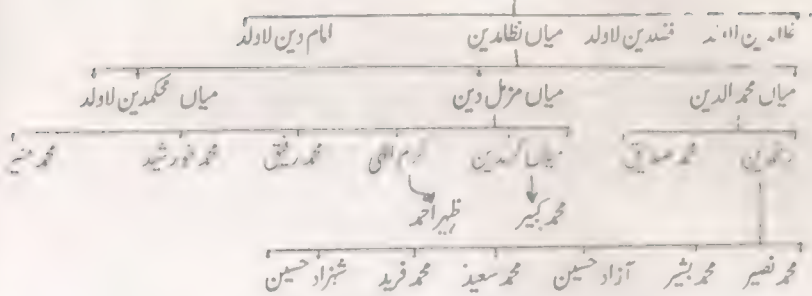 فتحدین لاولد میاں نظامدین امام دین لاولد
میاں محمد الدین میاں مزمل دین میاں محکمدین لاولد
محمد صدیق کرم الٰہی محمد رفیق محمد خورشید محمد منیر
محمد کبیر ظہیر احمد
محمد نصیر محمد بشیر آزاد حسین محمد سعید محمد فرید شہزاد حسین